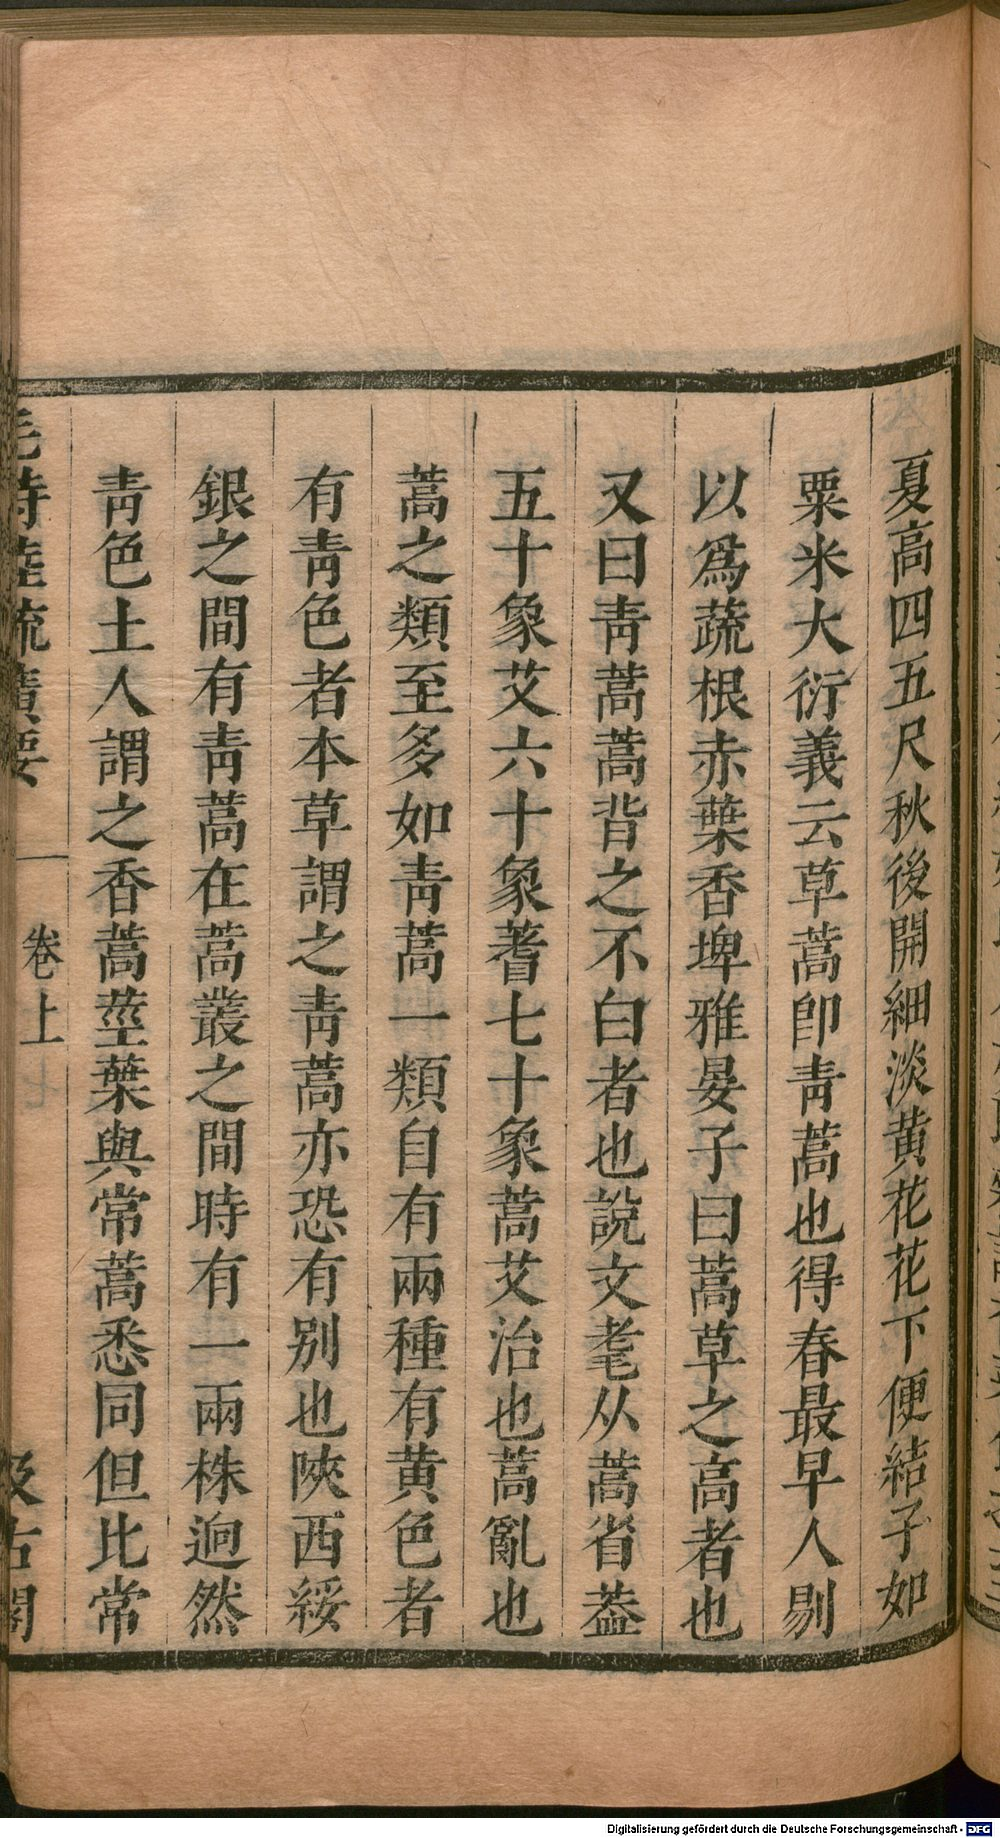 夏高四五尺秋後開細淡黄花花下便結子如
粟米大衍義云草蒿卽靑蒿也得春最早人剔
以爲蔬根赤葉香埤雅晏子曰蒿草之高者也
又曰靑蒿蒿背之不白者也說文耄从蒿省葢
五十象艾六十象蓍七十象蒿艾治也蒿亂也
蒿之類至多如靑蒿一類自有兩種有黄色者
有靑色者本草謂之靑蒿亦恐有别也陝西綏
銀之間有靑蒿在蒿叢之間時有一兩株迥然
靑色土人謂之香蒿莖葉與常蒿悉同但比常
毛詩陸疏廣要 卷上 汲古閣
Digitalisierung gefördert durch die Deutsche Forschungsgemeinschaft - DFG